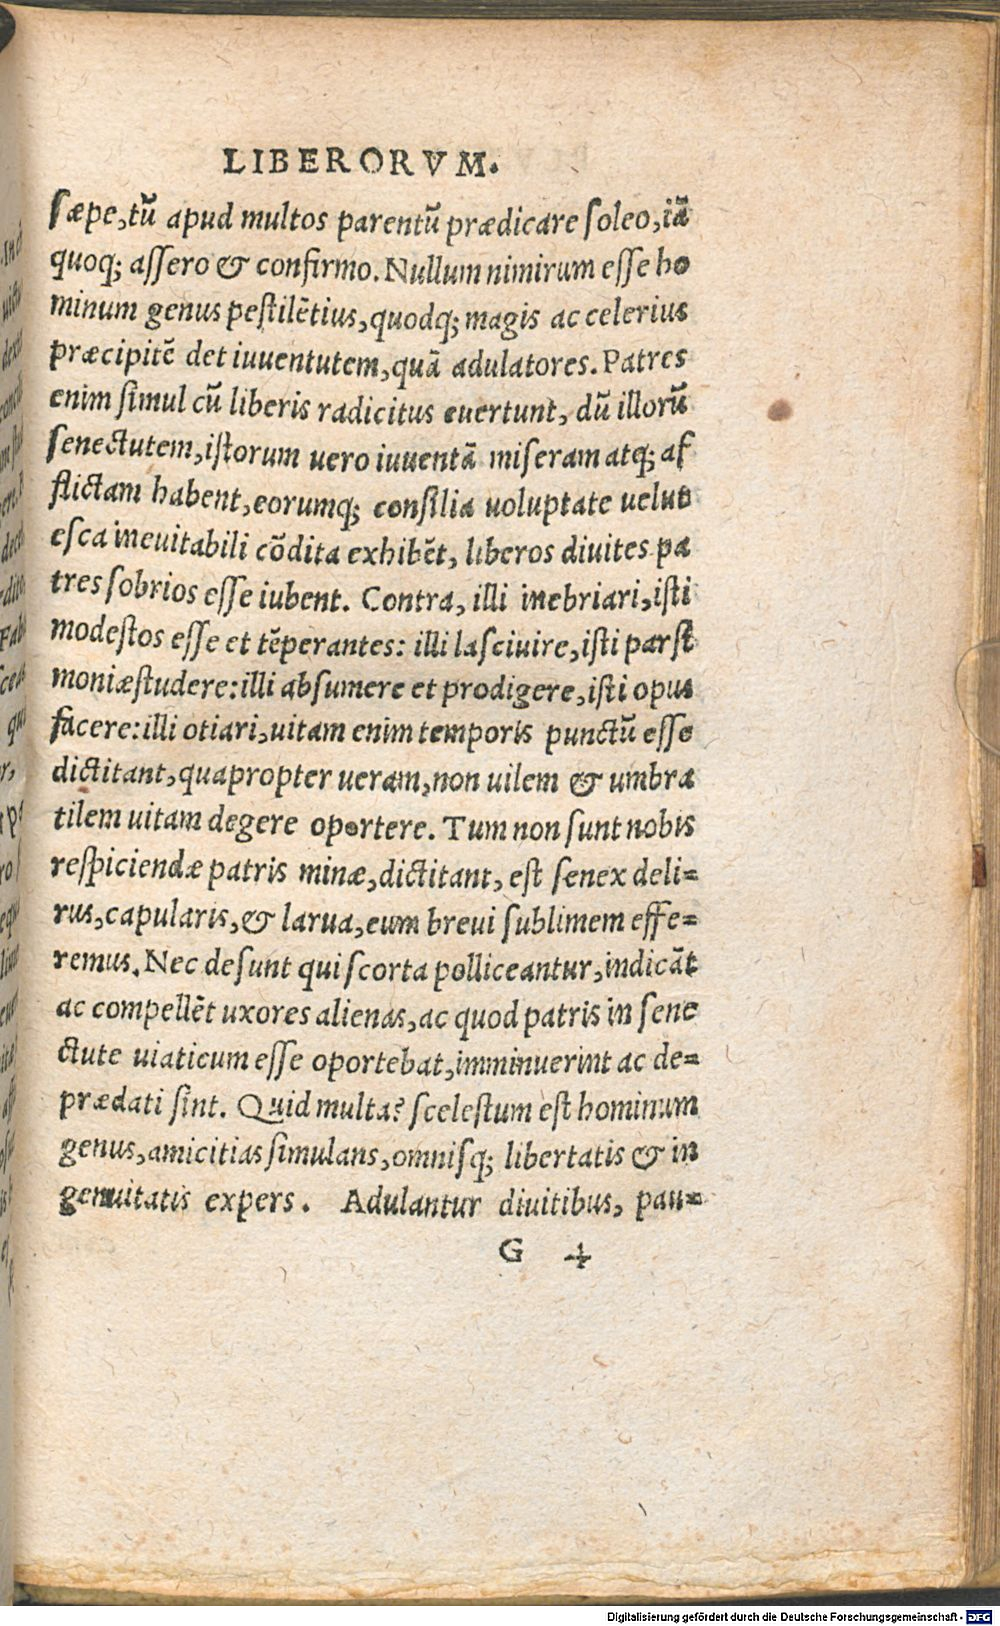 LIBERORVM.
sæpe, tū apud multos parentū prædicare soleo, iā
quoq; assero & confirmo. Nullum nimirum esse ho
minum genus pestilētius, quodq; magis ac celerius
præcipitē det iuuentutem, quā adulatores. Patres
enim simul cū liberis radicitus euertunt, dū illorū
senectutem, istorum uero iuuentā miseram atq; af
flictam habent, eorumq; consilia uoluptate uelut
esca ineuitabili cōdita exhibēt, liberos diuites pa
tres sobrios esse iubent. Contra, illi inebriari, isti
modestos esse et tēperantes: illi lasciuire, isti parsi
moniæ studere: illi absumere et prodigere, isti opus
facere: illi otiari, uitam enim temporis punctū esse
dictitant, quapropter ueram, non uilem & umbra
tilem uitam degere oportere. Tum non sunt nobis
respiciendæ patris minæ, dictitant, est senex deli=
rus, capularis, & larua, eum breui sublimem effe=
remus. Nec desunt qui scorta polliceantur, indicāt
ac compellēt uxores alienas, ac quod patris in sene
ctute uiaticum esse oportebat, imminuerint ac de=
prædati sint. Quid multa? scelestum est hominum
genus, amicitias simulans, omnisq; libertatis & in
genuitatis expers. Adulantur diuitibus, pau=
G 4
Digitalisierung gefördert durch die Deutsche Forschungsgemeinschaft - DFG